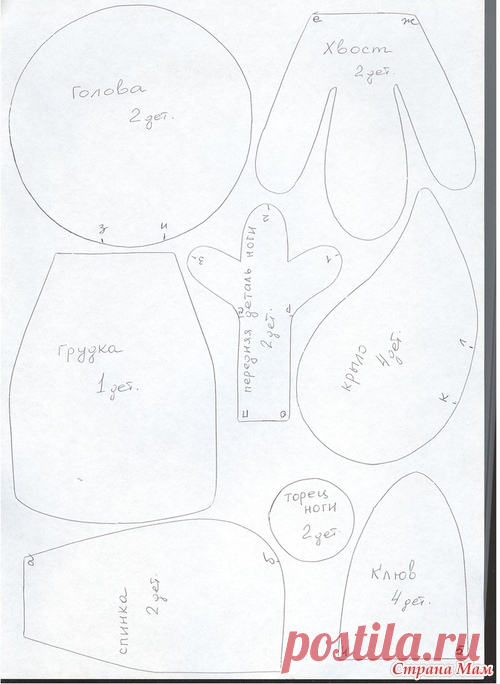 е ж
Хвост
2 дет.
голова
2 дет.
з и
2
3 1
передняя деталь ноги
2 дет.
р
п о
грудка
1 дет.
крыло
4 дет.
л
к
торец
ноги
2 дет.
а б
спинка
2 дет.
Клюв
4 дет.
postila.ru
Страна Мам